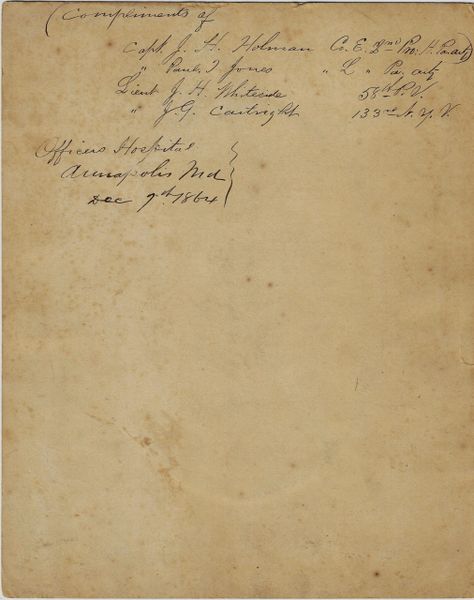 (Compliments of
Capt. J. H. Holman Co. E. 2nd Pro. H. Pa arty)
" Paul T. Jones " L " Pa. arty
Lieut J. H. Whiteside 58th P. V.
" J. G. Cartright 133rd N. Y. V.
Officers Hospital
Annapolis Md
Dec 9th 1864